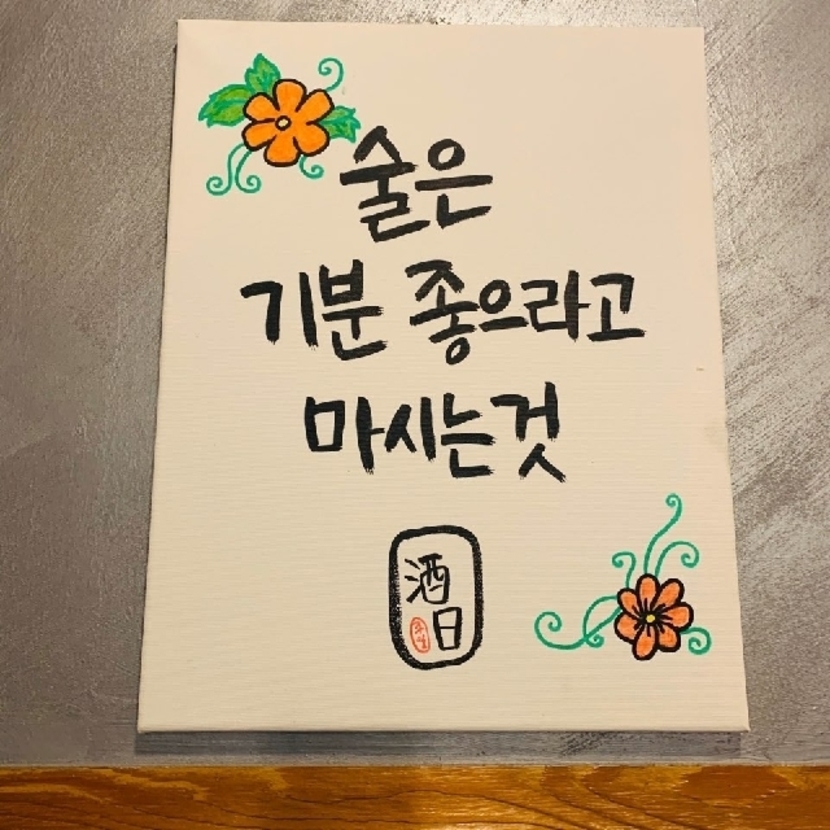 술은
기분 좋으라고
마시는것
酒
日
주일